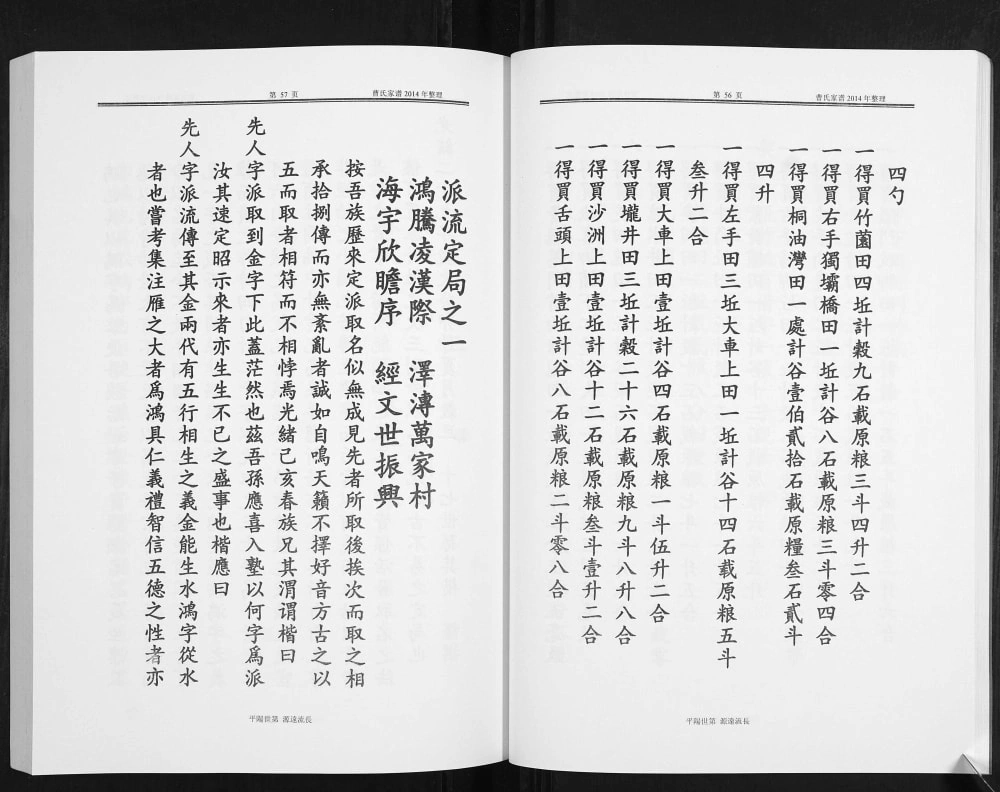 第 56 页
曹氏家谱 2014 年整理
四勺
一得買竹薗田四坵計穀九石載原粮三斗四升二合
一得買右手獨壩橋田一坵計谷八石載原粮三斗零四合
一得買桐油灣田一處計谷壹伯貳拾石載原糧叁石貳斗
四升
一得買左手田三坵大車上田一坵計谷十四石載原粮五斗
叁升二合
一得買大車上田壹坵計谷四石載原粮一斗伍升二合
一得買壠井田三坵計穀二十六石載原粮九斗八升八合
一得買沙洲上田壹坵計谷十二石載原粮叁斗壹升二合
一得買舌頭上田壹坵計谷八石載原粮二斗零八合
平陽世第 源遠流長
第 57 页
曹氏家谱 2014 年整理
派流定局之一
鴻騰凌漢際 澤溥萬家村
海宇欣瞻序 經文世振興
按吾族歷來定派取名似無成見先者所取後挨次而取之相
承拾捌傳而亦無紊亂者誠如自鳴天籟不擇好音方古之以
五而取者相符而不相悖焉光緒己亥春族兄其渭謂楷曰
先人字派取到金字下此蓋茫然也茲吾孫應喜入塾以何字爲派
汝其速定昭示來者亦生生不已之盛事也楷應曰
先人字派流傳至其金兩代有五行相生之義金能生水鴻字從水
者也嘗考集注雁之大者爲鴻具仁義禮智信五德之性者亦
平陽世第 源遠流長